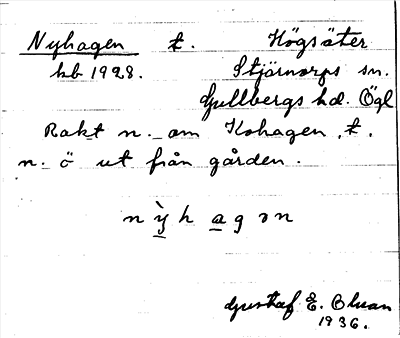 Nyhagen t. Högsäter
hb 1928. Stjärnorps sn.
Gullbergs hd. Ögl
Rakt n. om Kohagen, t.
n. ö ut från gården.
n ỳ h a g ə n
Gustaf E. Bluan
1936.